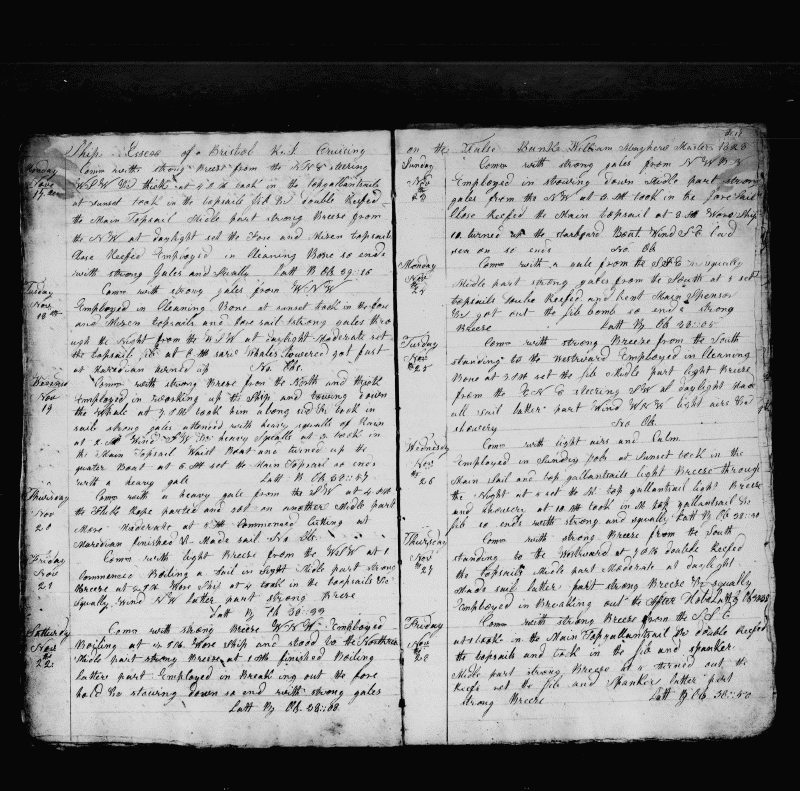 Ship Essex of a Bristol R.I. Cruising
Monday
Nov
17
Comes with strong Breeze from the NNE steering
WSW &c thick at 4 PM took in the topgallantsails
at sunset took in the topsails Jib &c double Reefed
the Main Topsail Midle part strong Breeze from
the NW at daylight set the Fore and Mizen topsails
Close Reefed Employed in Cleaning Bone so ends
with strong Gales and squally Latt By Ob
Tuesday
Nov
18
Coms with strong gales from WNW
Employed in Cleaning Bone at sunset took in the fore
and Mizen topsails and fore sail strong gales thro
ugh the Night from the WSW at daylight Moderate set
the topsails Jib at 8 AM saw Whales lowered got fast
at Meridian turned up No Obs
Wednesd
Nov
19
Coms with strong Breeze from the North and thick
Employed in working up the Ship and towing down
the whale at 7 PM took him along sid &c took in
sail strong gales attended with heavy squalls of Rain
at 2 AM Wind SW &c heavy Squalls at 3 took in
the Main Topsail Waist Boat and turned up the
quarter Boat at 5 AM set the Main Topsail so ends
with a heavy gale Latt By Ob
Thursday
Nov
20
Coms with a heavy gale from the SW at 4 PM
the Fluke Rope parted and sot on another Midle part
More Maderate at 5 AM Commenced Cutting at
Maridian finished it Made sail No Ob
Friday
Nov
21
Coms with light Breeze from the WSW at 1
Commenced Boiling a sail in Sight Midle part strong
Breeze at 2 AM Wore Ship at 4 took in the topsails &c
Squally Wind NW latter part strong Breeze
Latt By Ob
Satturday
Nov
22
Coms with strong Breeze WNW Employed
Boiling at 4 PM Wore Ship and stood to the Northw
Midle part strong Breeze at 1 AM finished Boiling
latter part Employed in Breaking out the fore
hold &c stowing down so end with strong gales
Latt By Ob
on the False Banks William Maghers Master 1823
Sunday
Nov
23
Coms with strong gales from NWBN
Employed in stowing down Midle part strong
gales from the NW at 3 AM took in the fore sail
Close Reefed the Main topsail at 8 AM Wore Ship
so turned up the starboard Boat Wind SE bad
sea on so ends No Ob
Monday
Nov
24
Coms with a gale from the SSE &c squally
Midle part strong gales from the South at 1 set
topsails double Reefed and bent Main Spencer
&c got out the jib boom so ends strong
Breeze Latt By Ob
Tuesday
Nov
25
Coms with strong Breeze from the South
standing to the Westward Employed in Cleaning
Bone at 3 PM set the jib Midle part light Breeze
from the ENE steering SW at daylight Made
all sail latter part Wind WNW light airs &c
showery No Ob
Wednesday
Nov
26
Coms with light airs and Calm
Employed in Sundry Job at Sunset took in the
Main Sail and top gallantsails light Breeze through
the Night at 4 set the M top gallantsail light Breeze
and showery at 10 AM took in M top gallantsail &c
jib so ends with strong and squally Latt By Ob
Thursday
Nov
27
Coms with strong Breeze from the South
standing to the Westward at 3 PM double Reefed
the topsails Midle part Moderate at daylight
Made sail latter part strong Breeze &c squally
Employed in Breaking out the After Hold Latt By Ob
Friday
Nov
28
Coms with strong Breeze from the SSE
at 1 took in the Main Topgallantsail &c double Reefed
the topsails and took in the jib and spanker
Midle part strong Breeze at 4 turned out the
Reefs set the jib and Spanker latter part
strong Breeze Latt By Ob